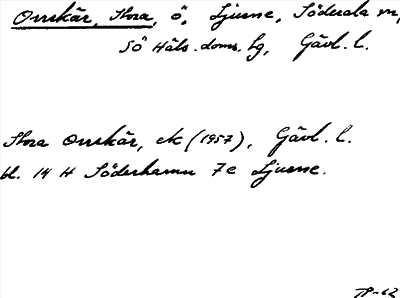 Orrskär, Stora, ö, Ljusne, Söderala sn,
SÖ Häls. doms. hg, Gävl. l.
Stora Orrskär, ek (1957), Gävl. l.
bl. 14 H Söderhamn 7e Ljusne.